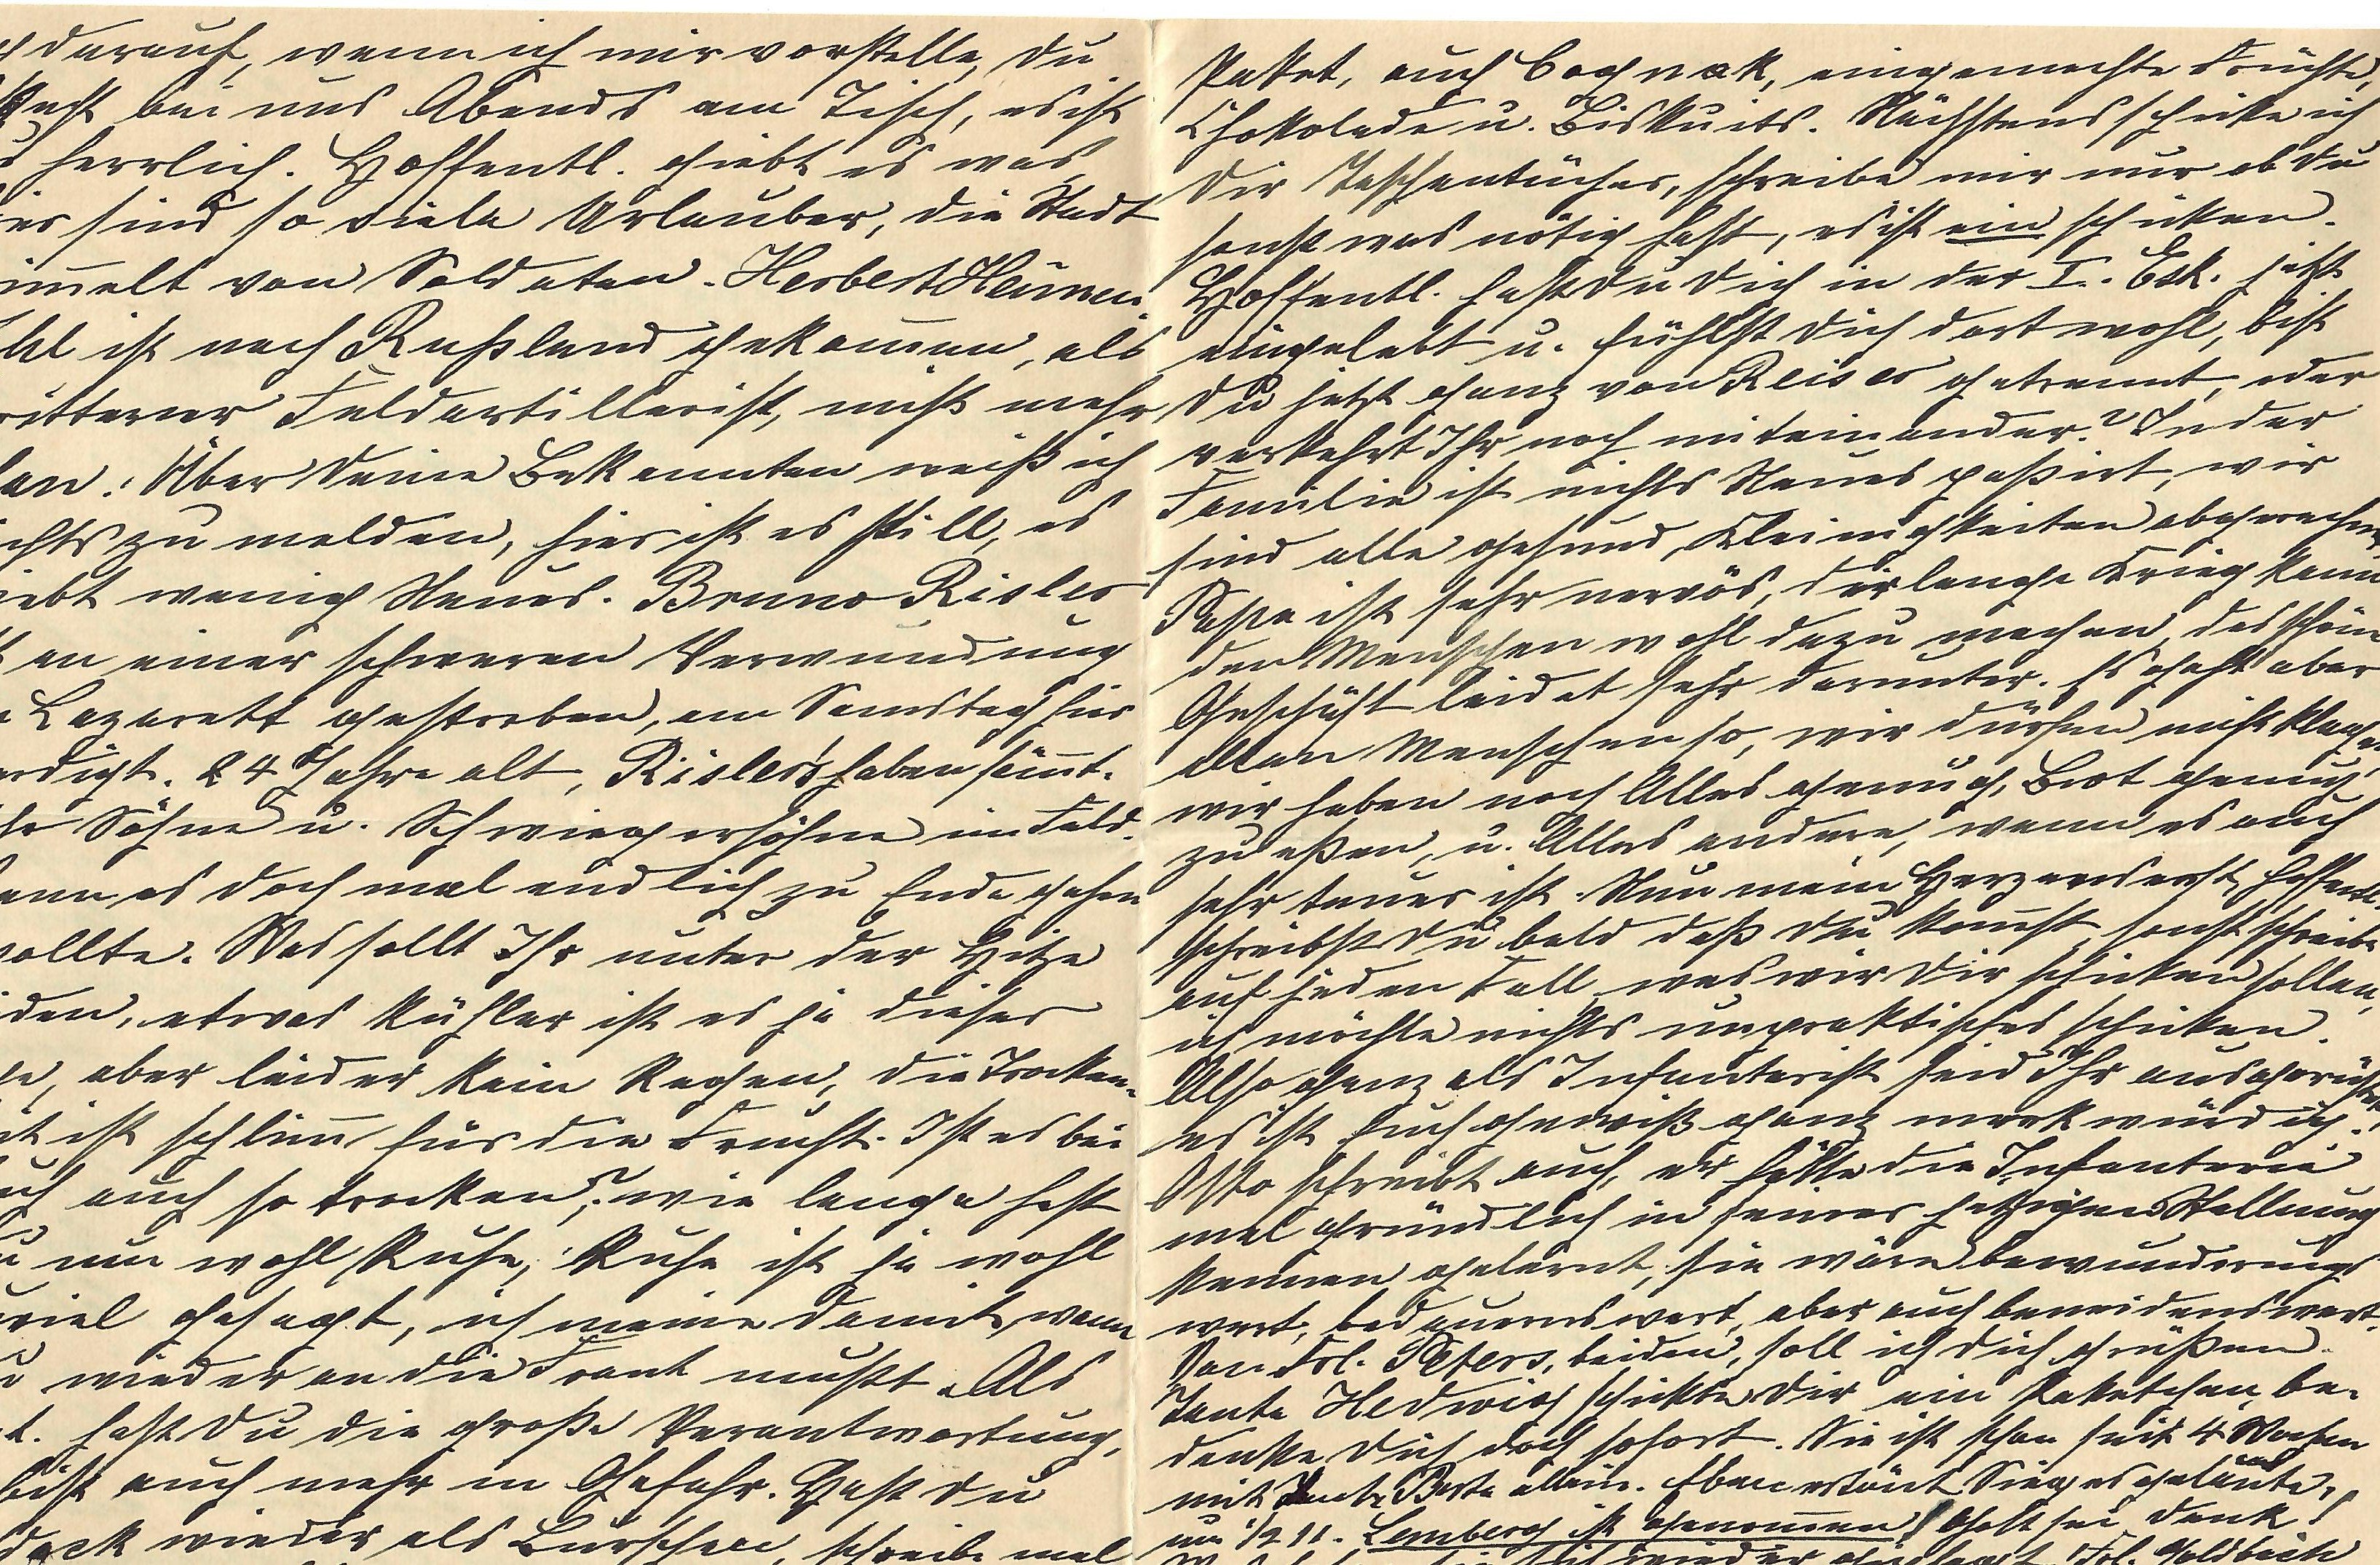 darauf, wenn ich mir vorstelle, Du
bei uns Abends am Tisch, es ist
herrlich. Hoffentl. giebt es was,
sind so viele Urlauber, die Stadt
immelt von Soldaten. Herbert
hl ist nach Rußland gekom̅en, als
rittener Feldartillerist, nicht mehr
lan. Über Deine Bekannten weiß ich
ichts zu melden, hier ist es still, es
iebt wenig Neues. Bruno Risler
an einer schweren Verwundung
Lazarett gestorben, am Samstag hier
erdigt. 24 Jahre alt, Risler's haben säm̅t.
Söhne u. Schwiegersöhne im Feld.
enn es doch mal endlich zu Ende gehen
wollte. Was sollt Ihr unter der Hitze
iden, etwas kühler ist es ja diese
aber leider kein Regen, die Trocken-
it ist schlim̅ für die Frucht. Ist es bei
ch auch so trocken? wie lange hast
nun wohl Ruhe, Ruhe ist ja wohl
viel gesagt, ich meine damit, wann
wieder an die Front mußt. Als
t. hast Du die große Verantwortung,
bist auch mehr in Gefahr. Hast Du
wieder als Burschen, schreibe mal
Paket, auch Cognak, eingemachte Früchte,
Chokolade u. Biskuits. Nächstens schicke ich
Dir Taschentücher, schreibe mir nur ob Du
sonst was nötig hast, es ist ein schicken.
Hoffentl. hast Du Dich in der I. Esk. jetzt
eingelebt u. fühlst Dich dort wohl, bist
Du jetzt ganz von Reiser getrennt, oder
verkehrt Ihr noch miteinander? In der
Familie ist nichts Neues paßirt, wir
sind alle gesund, Kleinigkeiten abgerechnet.
Papa ist sehr nervös, der lange Krieg kann
den Menschen wohl dazu machen, das schöne
Geschäft leidet sehr darunter. Es geht aber
allen Menschen so, wir dürfen nicht klagen,
wir haben noch Alles genug, Brot genug
zu eßen, u. Alles andere, wenn es auch
sehr teuer ist. Nun mein Hoffentl.
schreibst Du bald daß Du kom̅st, sonst schreibe
auf jeden Fall, was wir Dir schicken sollen,
ich möchte nichts unpraktisches schicken.
Also ganz als Infanterist seid Ihr ausgerüstet,
es ist Euch gewiß ganz merkwürdig.
Otto schreibt auch, er hätte die Infanterie
mal gründlich in seiner jetzigen Stellung
kennen gelernt, sie wäre bewunderungs
wert, bedauernswert, aber auch beneidenswert.
Von Frl. Peters, beiden, soll ich Dich grüßen.
Tante Hedwig schickte Dir ein Paketchen, be-
danke Dich doch sofort. Sie ist schon seit 4 Wochen
mit Tante Berta allein. Eben ertönt Siegesgeläute,
um 1/2 11. Lemberg ist genom̅en! Gott sei Dank!